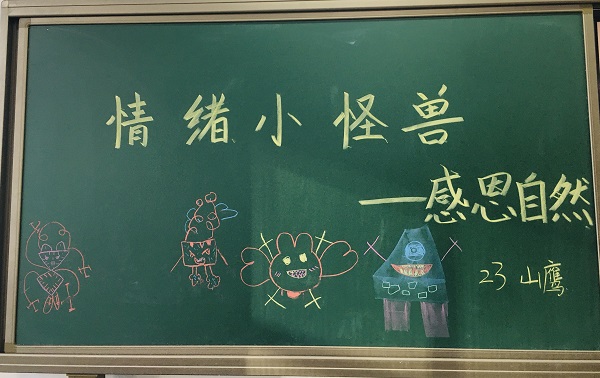 情绪小怪兽
—感恩自然
23 山鹰